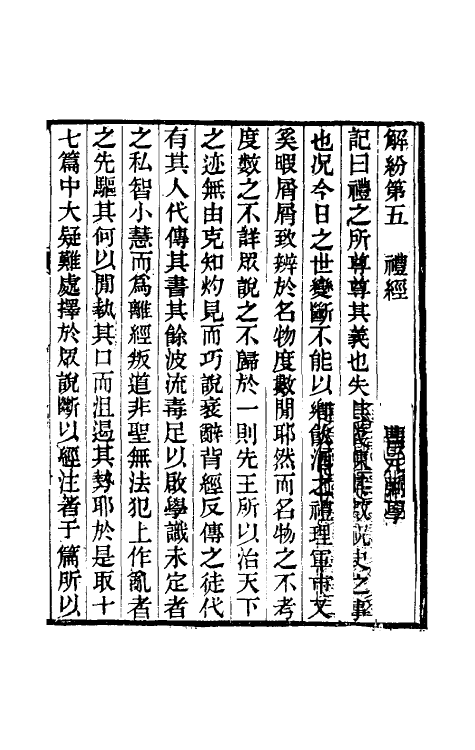 解紛第五　禮經　曹元弼學
記曰禮之所尊尊其義也失其義陳其數祝史之事
也况今日之世變斷不能以鄉飲酒之禮理軍市又
奚暇屑屑致辨於名物度數閒耶然而名物之不考
度數之不詳眾說之不歸於一則先王所以治天下
之迹無由克知灼見而巧說衺辭背經反傳之徒代
有其人代傳其書其餘波流毒足以啟學識未定者
之私智小慧而爲離經叛道非聖無法犯上作亂者
之先驅其何以閒執其口而沮遏其勢耶於是取十
七篇中大疑難處擇於眾說斷以經注著于篇所以